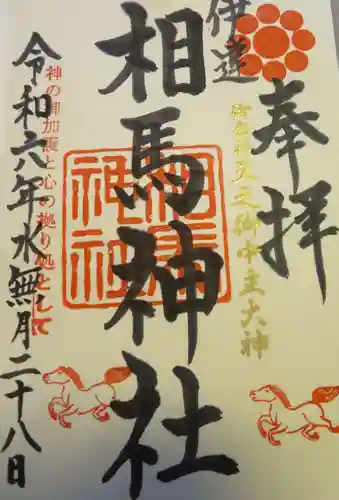 奉拝
伊達
御祭神 天之御中主大神
相馬神社
相馬神社
神の御加護と心の拠り処として
令和六年水無月二十八日